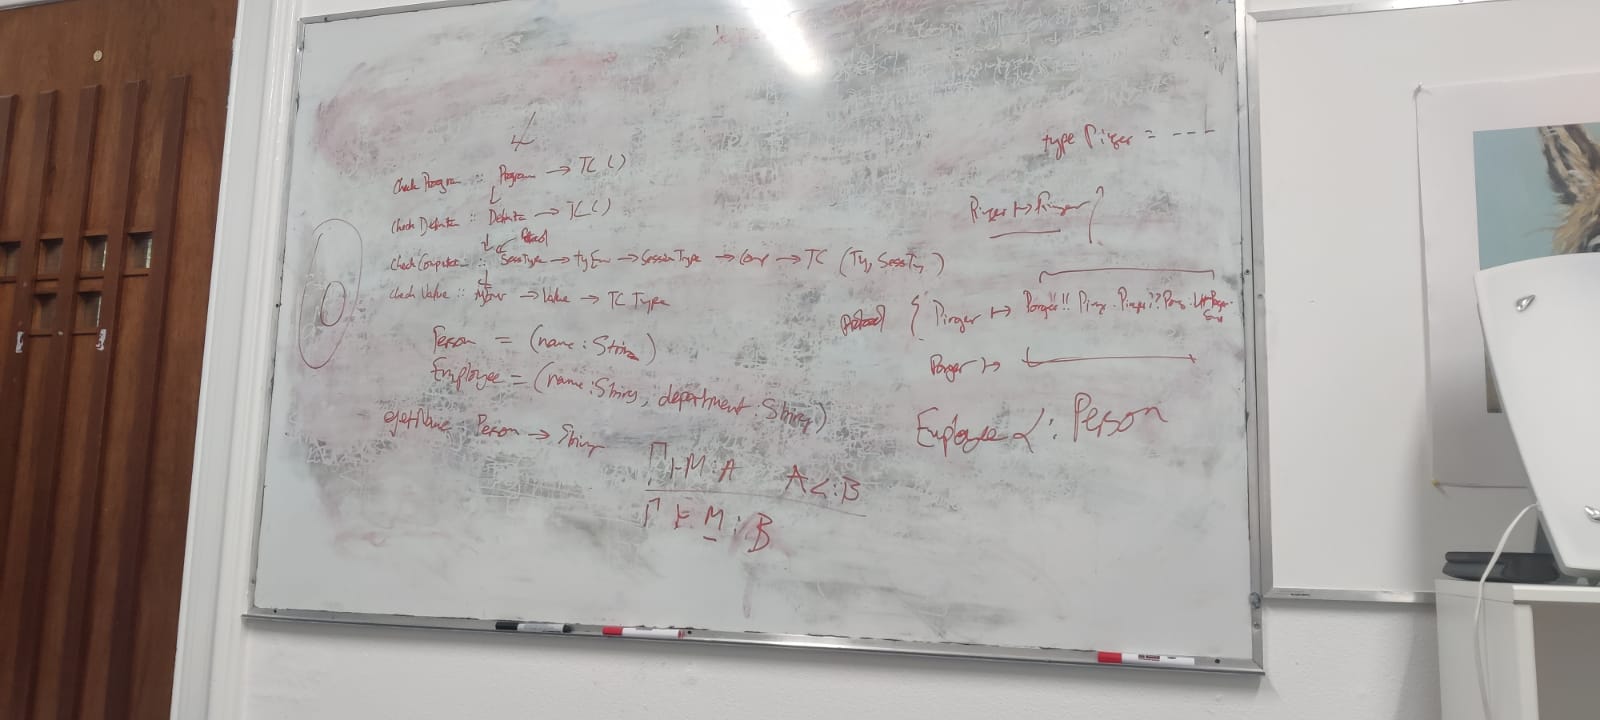 Check Program :: Program → TC ()
Check Definition :: Definition → TC ()
Protocol
Check Computation :: SessType → tyEnv → SessionType → Comp → TC (Ty, SessTy)
Check Value :: → Value → TC Type
Person = (name : String)
Employee = (name : String, department : String)
getName Person → String
Γ ⊢ M : A A <: B
Γ ⊢ M : B
type Pinger = ---
Pinger ↦ Pinger
Protocol { Pinger ↦ Ponger!! Ping . Pinger?? Pong .
Ponger ↦
Employee <: Person